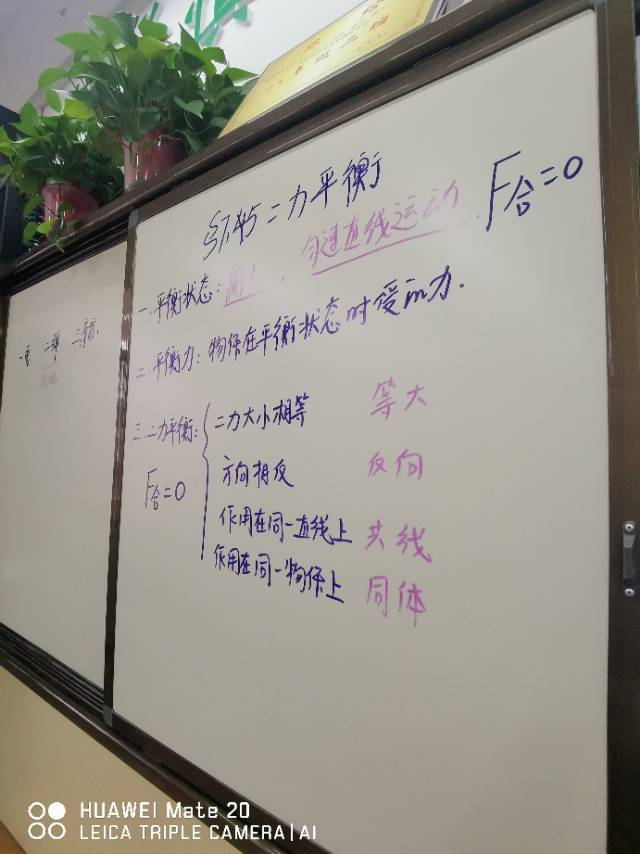 §7.4.5 二力平衡
F合=0
一. 平衡状态: 静止, 匀速直线运动
二 平衡力: 物体在平衡状态时受的力.
三. 二力平衡:
F合=0
二力大小相等 等大
方向相反 反向
作用在同一直线上 共线
作用在同一物体上 同体
HUAWEI Mate 20
LEICA TRIPLE CAMERA | AI